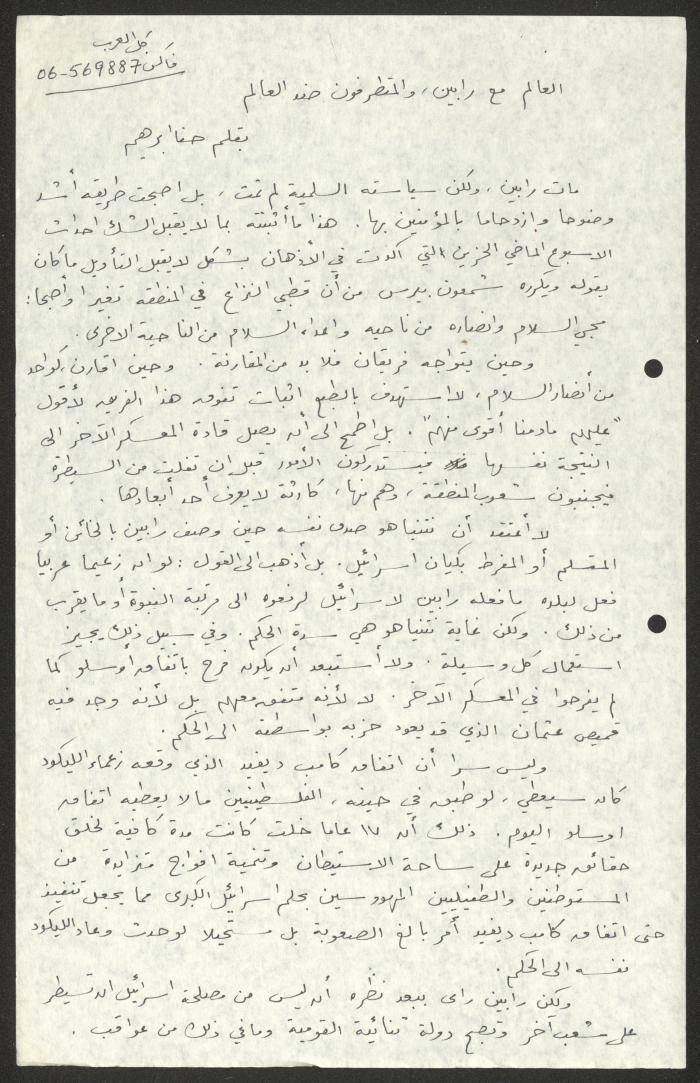 كل العرب
فاكس 569887-06
العالم مع رابين، والمتطرفون ضد العالم
بقلم حنا ابرهيم
مات رابين، ولكن سياسته السلمية لم تمت، بل اصبحت طريقه أشد
وضوحا وازدحاما بالمؤمنين بها. هذا ما أثبتته بما لا يقبل الشك احداث
الاسبوع الماضي الحزين، التي اكدت في الأذهان بشكل لا يقبل التأويل ما كان
يقوله ويكرره شمعون بيرس من أن قطبي النزاع في المنطقة تغيرا وأصبحا:
محبي السلام وانصاره من ناحيه واعداء السلام من الناحية الاخرى.
وحين يتواجه فريقان فلا بد من المقارنة. وحين اقارن، كواحد
من أنصار السلام، لا استهدف بالطبع اثبات تفوق هذا الفريق لأقول
"عليهم ما دمنا أقوى منهم". بل اطمح الى أن يصل قادة المعسكر الآخر الى
النتيجة نفسها فيستدركون الأمور قبل ان تفلت من السيطرة
فيجنبون شعوب المنطقة، وهم منها، كارثة لا يعرف أحد أبعادها.
لا أعتقد أن نتنياهو صدق نفسه حين وصف رابين بالخائن أو
المستسلم أو المفرط بكيان اسرائيل. بل أذهب الى القول: لو ان زعيما عربيا
فعل لبلده ما فعله رابين لاسرائيل لرفعوه الى مرتبة النبوة أو ما يقرب
من ذلك. ولكن غاية نتنياهو هي سدة الحكم. وفي سبيل ذلك يجيز
استعمال كل وسيلة. ولا أستبعد أن يكون فرح باتفاق أوسلو كما
لم يفرحوا في المعسكر الآخر. لا لأنه متفق معهم بل لأنه وجد فيه
قميص عثمان الذي قد يعود حزبه بواسطته الى الحكم.
وليس سرا أن اتفاق كامب ديفيد الذي وقعه زعماء الليكود
كان سيعطي، لو طبق في حينه، الفلسطينيين ما لا يعطيه اتفاق
اوسلو اليوم. ذلك أن ١٧ عاما خلت كانت مدة كافية لخلق
حقائق جديدة على ساحة الاستيطان وتنمية افواج متزايدة من
المستوطنين والطفيليين المهووسين بحلم اسرائيل الكبرى مما يجعل تنفيذ
حتى اتفاق كامب ديفيد أمر بالغ الصعوبة بل مستحيلا لو حدث وعاد الليكود
نفسه الى الحكم.
ولكن رابين رأى ببعد نظره أن ليس من مصلحة اسرائيل ان تسيطر
على شعب آخر وتصبح دولة ثنائية القومية وما في ذلك من عواقب.